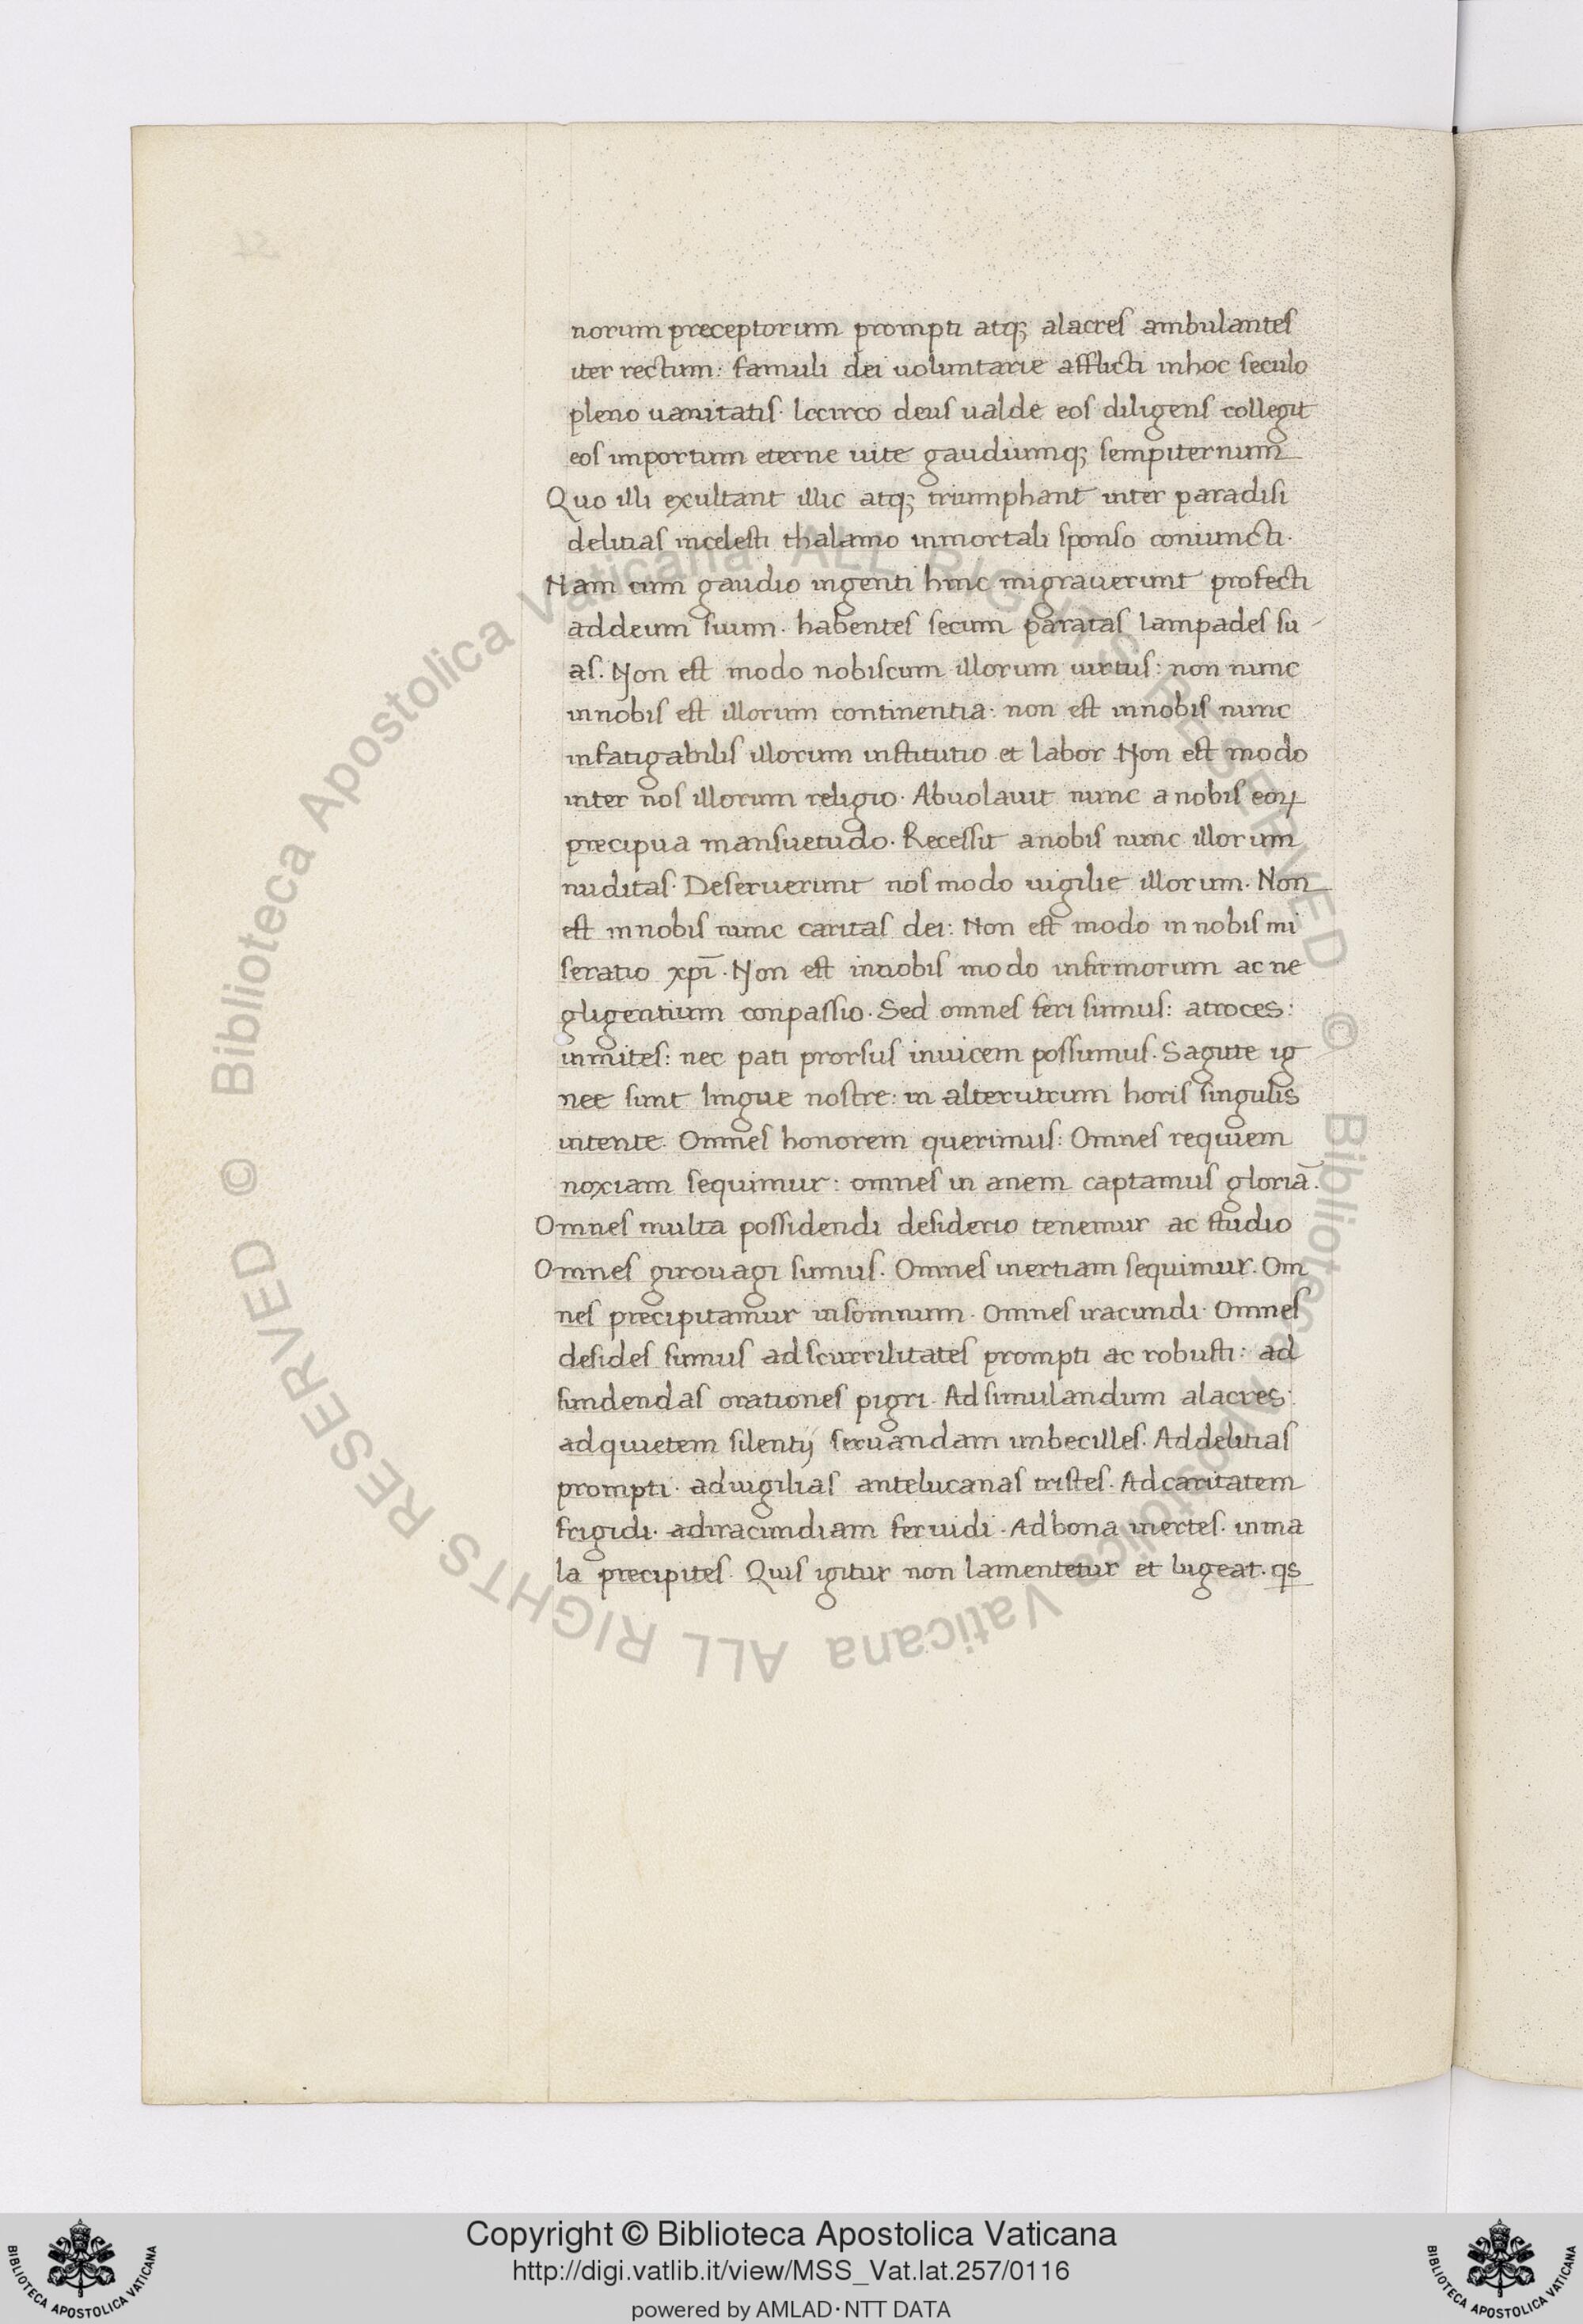 norum preceptorum prompti atq; alacres ambulantes
iter rectum: famuli dei uoluntarie afflicti inhoc seculo
pleno uanitatis. Iccirco deus ualde eos diligens collegit
eos inportum eterne uite gaudiumq; sempiternum
Quo illi exultant illic atq; triumphant inter paradisi
delitias incelesti thalamo inmortali sponso coniuncti.
Nam cum gaudio ingenti hinc migrauerunt profecti
addeum suum. habentes secum paratas lampades su
as. Non est modo nobiscum illorum uirtus: non nunc
innobis est illorum continentia: non est innobis nunc
infatigabilis illorum institutio et labor. Non est modo
inter nos illorum religio. Abuolauit nunc a nobis eoꝝ
precipua mansuetudo. Recessit anobis nunc illorum
nuditas. Deseruerunt nos modo uigilie illorum. Non
est innobis nunc caritas dei: Non est modo in nobis mi
seratio xpī. Non est innobis modo infirmorum ac ne
gligentium conpassio. Sed omnes feri sumus: atroces:
inmites: nec pati prorsus inuicem possumus. Sagitte ig
nee sunt lingue nostre: in alterutrum horis singulis
intente. Omnes honorem querimus: Omnes requiem
noxiam sequimur: omnes in anem captamus gloriā.
Omnes multa possidendi desiderio tenemur ac studio
Omnes girouagi sumus. Omnes inertiam sequimur. Om
nes precipitamur insomnum. Omnes iracundi. Omnes
desides sumus adscurrilitates prompti ac robusti: ad
fundendas orationes pigri. Adsimulandum alacres:
adquietem silentij seruandam imbecilles. Addelitias
prompti. aduigilias antelucanas tristes. Adcaritatem
frigidi. adiracundiam feruidi. Adbona inertes. inma
la precipites. Quis igitur non lamentetur et lugeat. qs
© Biblioteca Apostolica Vaticana ALL RIGHTS RESERVED © Biblioteca Apostolica Vaticana ALL RIGHTS RESERVED
Copyright © Biblioteca Apostolica Vaticana
http://digi.vatlib.it/view/MSS_Vat.lat.257/0116
powered by AMLAD·NTT DATA
BIBLIOTECA APOSTOLICA VATICANA
BIBLIOTECA APOSTOLICA VATICANA